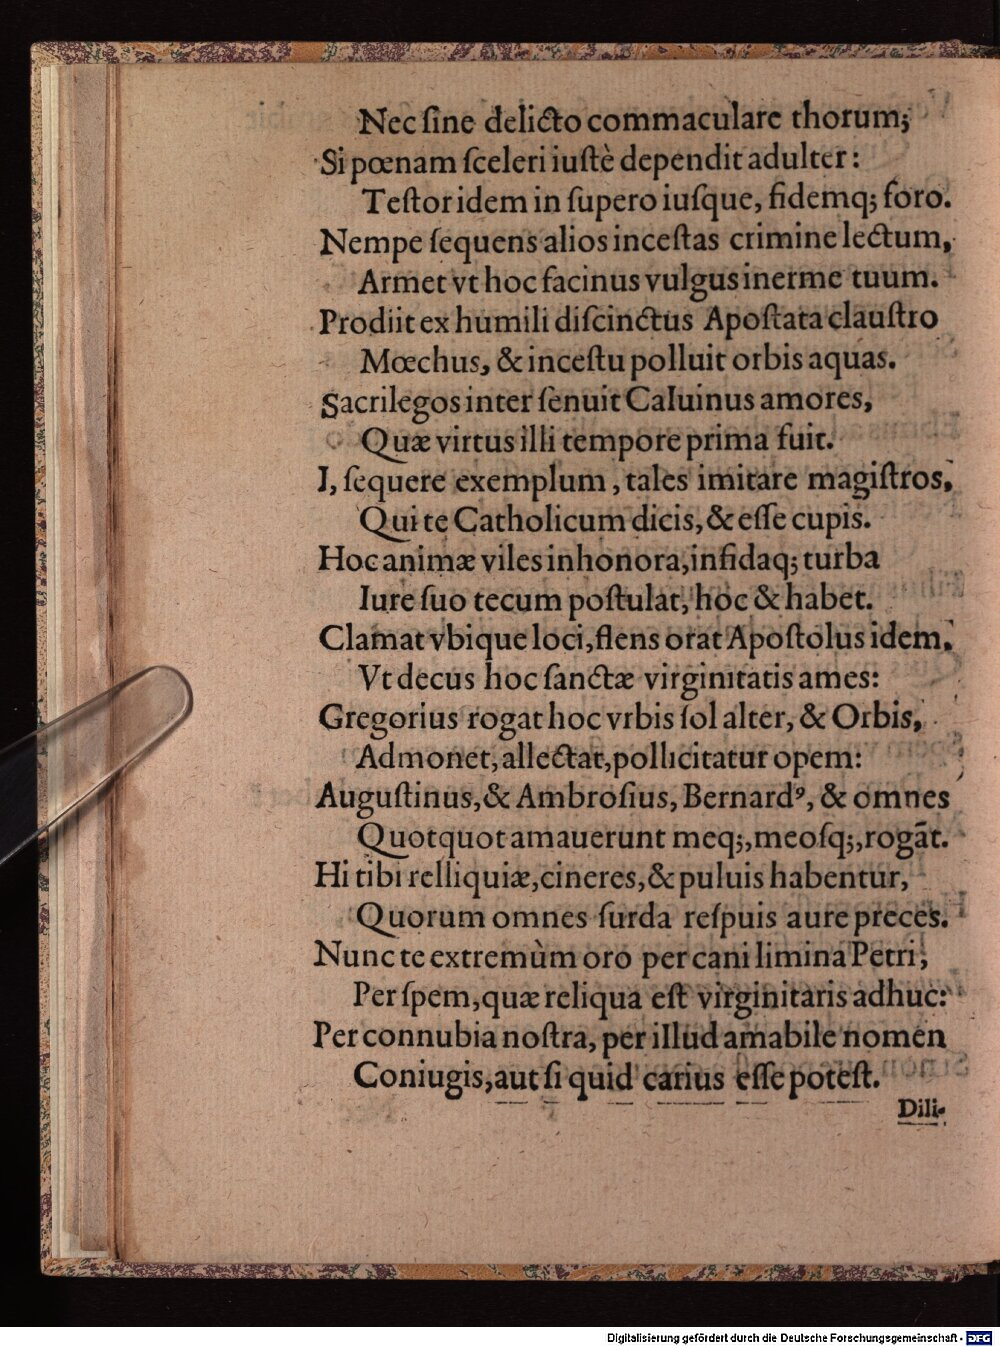 Nec ſine delicto commaculare thorum;
Si pœnam ſceleri iuſtè dependit adulter:
Teſtor idem in ſupero iuſque, fidemq; foro.
Nempe ſequens alios inceſtas crimine lectum,
Armet vt hoc facinus vulgus inerme tuum.
Prodiit ex humili diſcinctus Apoſtata clauſtro
Mœchus, & inceſtu polluit orbis aquas.
Sacrilegos inter ſenuit Caluinus amores,
Quæ virtus illi tempore prima fuit.
I, ſequere exemplum, tales imitare magiſtros,
Qui te Catholicum dicis, & eſſe cupis.
Hoc animæ viles inhonora, infidaq; turba
Iure ſuo tecum poſtulat, hoc & habet.
Clamat vbique loci, flens orat Apoſtolus idem,
Vt decus hoc ſanctæ virginitatis ames:
Gregorius rogat hoc vrbis ſol alter, & Orbis,
Admonet, allectat, pollicitatur opem:
Auguſtinus, & Ambroſius, Bernardꝰ, & omnes
Quotquot amauerunt meq;, meoſq;, rogãt.
Hi tibi relliquiæ, cineres, & puluis habentur,
Quorum omnes ſurda reſpuis aure preces.
Nunc te extremùm oro per cani limina Petri,
Per ſpem, quæ reliqua eſt virginitatis adhuc:
Per connubia noſtra, per illud amabile nomen
Coniugis, aut ſi quid carius eſſe poteſt.
Dili-
Digitalisierung gefördert durch die Deutsche Forschungsgemeinschaft - DFG